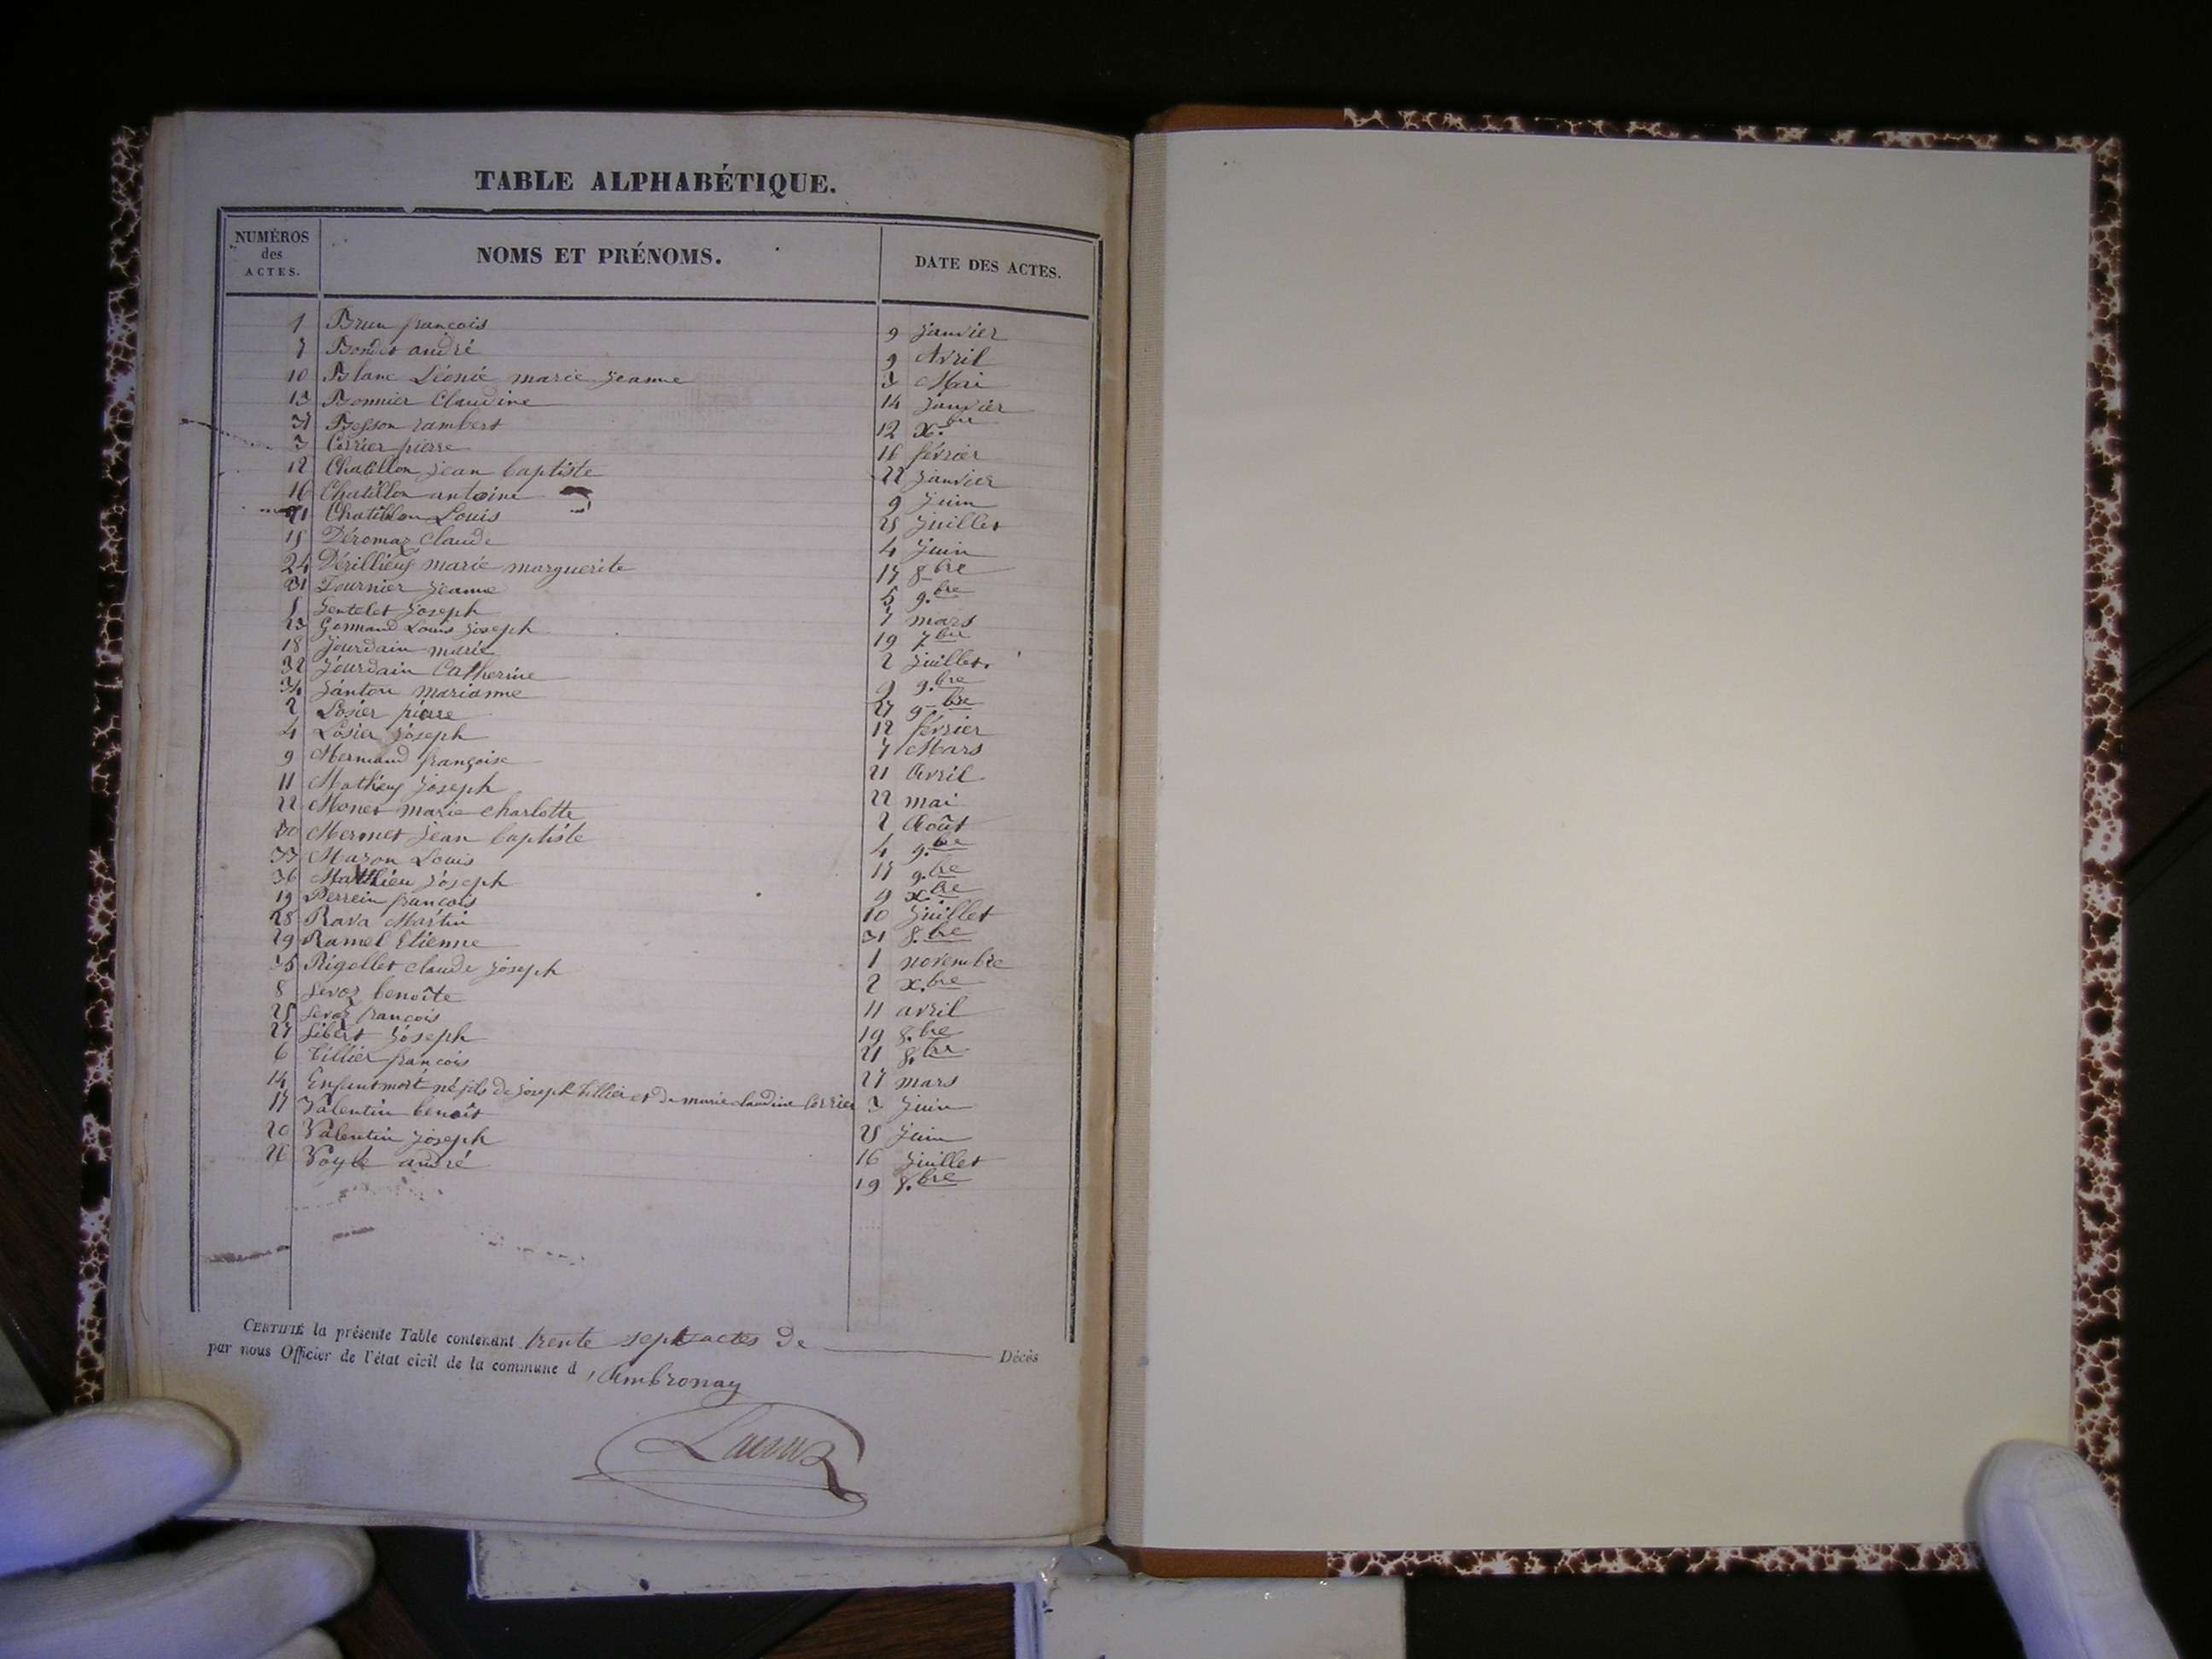 TABLE ALPHABÉTIQUE.
NUMÉROS des ACTES. NOMS ET PRÉNOMS. DATE DES ACTES.
1 Brun françois 9 Janvier
7 Bondet andré 9 Avril
10 Blanc Léonie marie jeanne 3 Mai
13 Bonnier Claudine 14 Janvier
37 Besson rambert 12 x.bre
3 Cerrier pierre 16 février
12 Chatillon jean baptiste 22 Janvier
16 Chatillon antoine 9 Juin
21 Chatillon Louis 25 Juillet
15 Déromaz Claude 4 Juin
24 Dérillieux marie marguerite 17 8bre
31 Fournier jeanne 5 9.bre
5 Gentelet Joseph 7 mars
23 Gonnand Louis Joseph 19 7bre
18 Jourdain marie 2 Juillet
32 Jourdain Catherine 9 9.bre
34 Janton marianne 27 9bre
2 Losier pierre 12 février
4 Losier Joseph 7 Mars
9 Mermand françoise 21 Avril
11 Mathieux Joseph 22 mai
22 Monet marie charlotte 2 Août
30 Mermet Jean baptiste 4 9.bre
33 Mazon Louis 17 9.bre
36 Matthieu Joseph 9 x.bre
19 Perrein françois 10 Juillet
28 Rava Martin 31 8.bre
29 Ramel Etienne 1 novembre
35 Rigollet claude Joseph 2 x.bre
8 Servoz benoîte 11 avril
25 françois 19 8.bre
27 Sibert Joseph 21 8.bre
6 Tillier françois 27 mars
14 Enfant mort né fils de joseph tillier et de marie claudine Cerrier 3 Juin
17 Valentin benoît 25 Juin
20 Valentin Joseph 16 Juillet
26 Voyle andré 19 8.bre
CERTIFIÉ la présente Table contenant trente sept actes de Décès
par nous Officier de l'état civil de la commune d'Ambronay